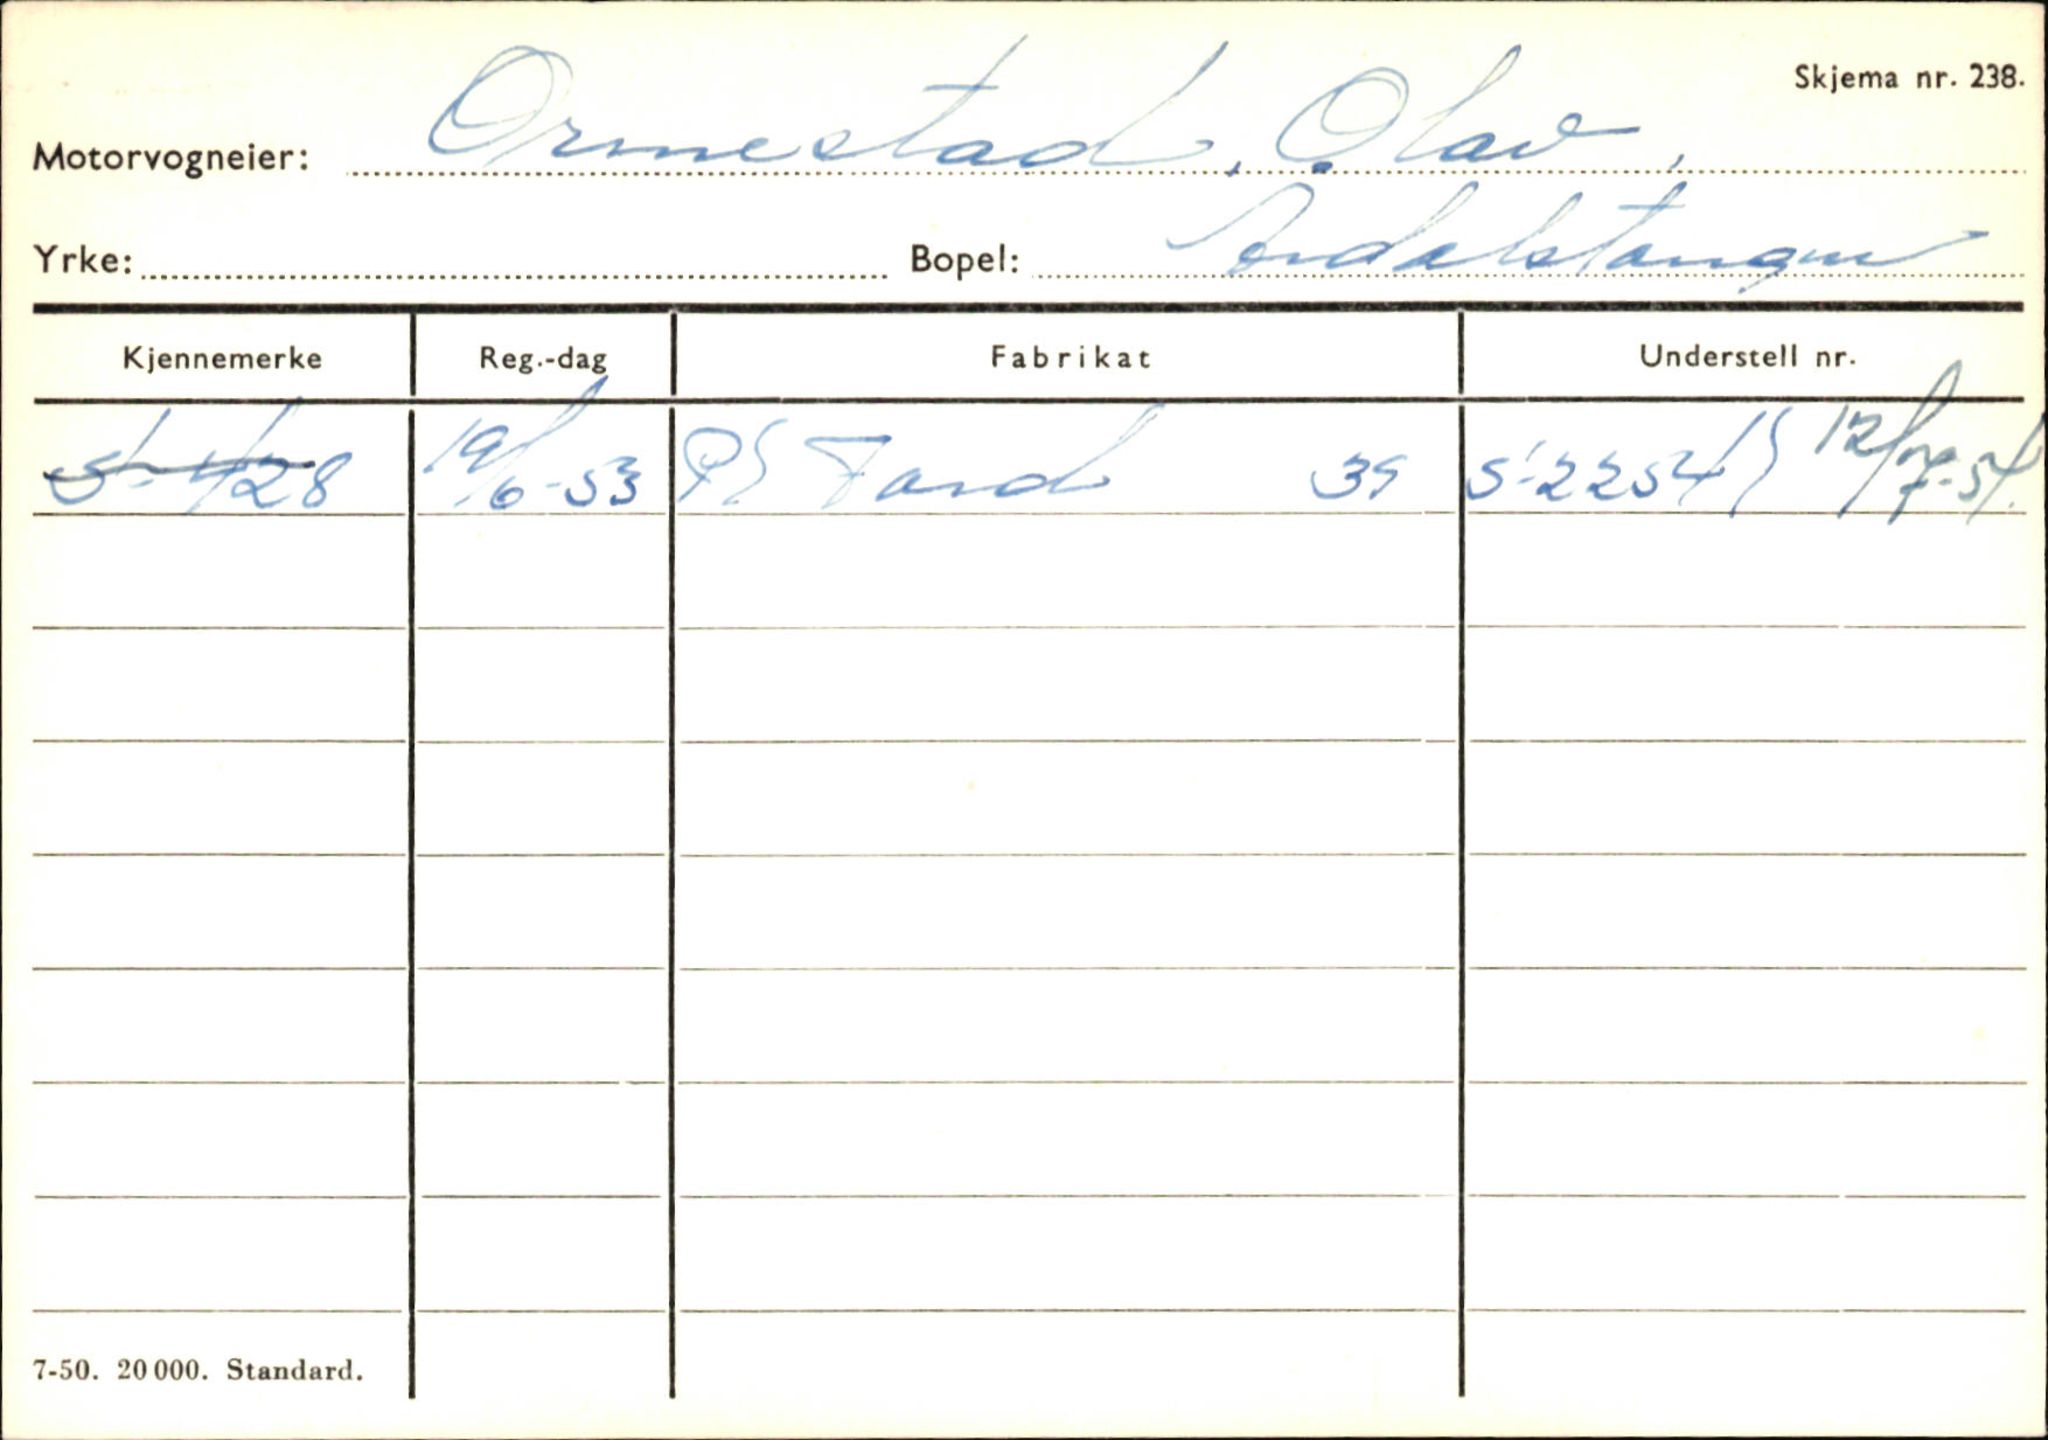 Skjema nr. 238.
Motorvogneier: Ormestad, Olav,
Yrke: Bopel: Årdalstangen
Kjennemerke Reg.-dag Fabrikat Understell nr.
S-1428 19/6-53 Ford 39 S-2254 12/7-54.
7-50. 20 000. Standard.